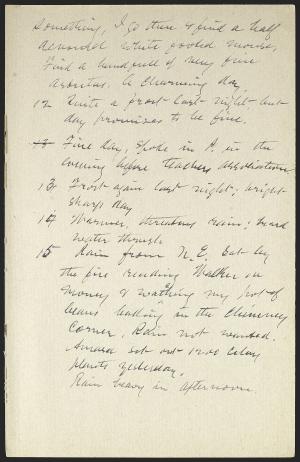 something, I go there & find a half
devoured white footed mouse,
Find a handfull of very fine
A charming day
12 Quite a frost last night - but
day promises to be fine.
13 Fine day, Spoke in P. in the
evening before teachers association
13 Frost again last night; bright
sharp day
14 Warmer, threatens rain; heard
15 Rain from N.E. Sat by
the fire reading Walker on
money & watching my pot of
beans baking in the chimney
corner. Rain not wanted.
set out 1200 celery
plants yesterday.
Rain heavy in afternoon